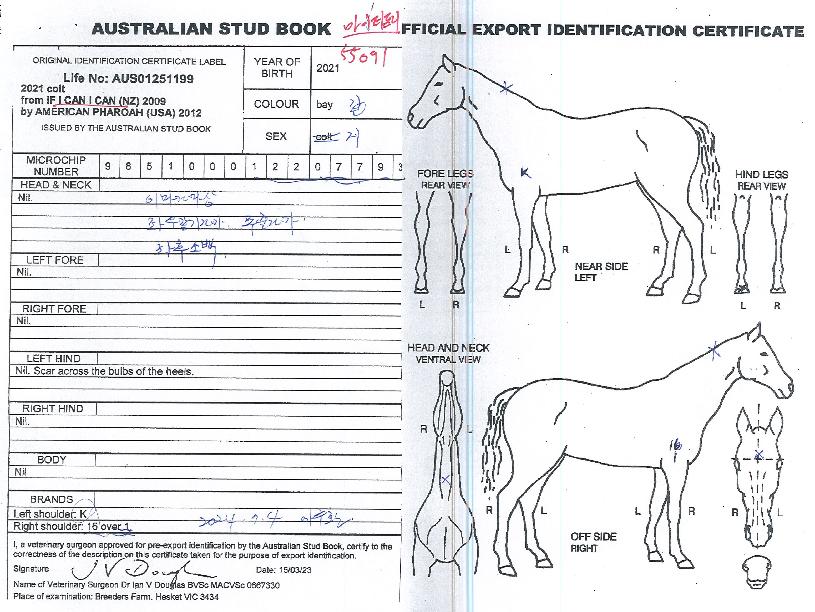 AUSTRALIAN STUD BOOK
FFICIAL EXPORT IDENTIFICATION CERTIFICATE
55091
ORIGINAL IDENTIFICATION CERTIFICATE LABEL
Life No: AUS01251199
2021 colt
from IF I CAN I CAN (NZ) 2009
by AMERICAN PHAROAH (USA) 2012
ISSUED BY THE AUSTRALIAN STUD BOOK
YEAR OF BIRTH 2021
COLOUR bay 갈
SEX colt 거
MICROCHIP NUMBER 9 8 5 1 0 0 0 1 2 2 0 7 7 9 3
HEAD & NECK
Nil.
LEFT FORE
Nil.
RIGHT FORE
Nil.
LEFT HIND
Nil. Scar across the bulbs of the heels.
RIGHT HIND
Nil.
BODY
Nil
BRANDS
Left shoulder: K
Right shoulder: 16 over 1
2024.7.4
I, a veterinary surgeon approved for pre-export identification by the Australian Stud Book, certify to the
correctness of the description on this certificate taken for the purpose of export identification.
Signature
Date: 15/03/23
Name of Veterinary Surgeon Dr Ian V Douglas BVSc MACVSc 0667330
Place of examination: Breeders Farm, Hesket VIC 3434
FORE LEGS
REAR VIEW
L R
K
L R R L
NEAR SIDE
LEFT
HIND LEGS
REAR VIEW
L R
HEAD AND NECK
VENTRAL VIEW
R L
16
R L L R
OFF SIDE
RIGHT
R L